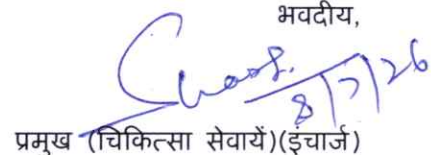 भवदीय,
8/7/26
प्रमुख (चिकित्सा सेवायें)(इंचार्ज)